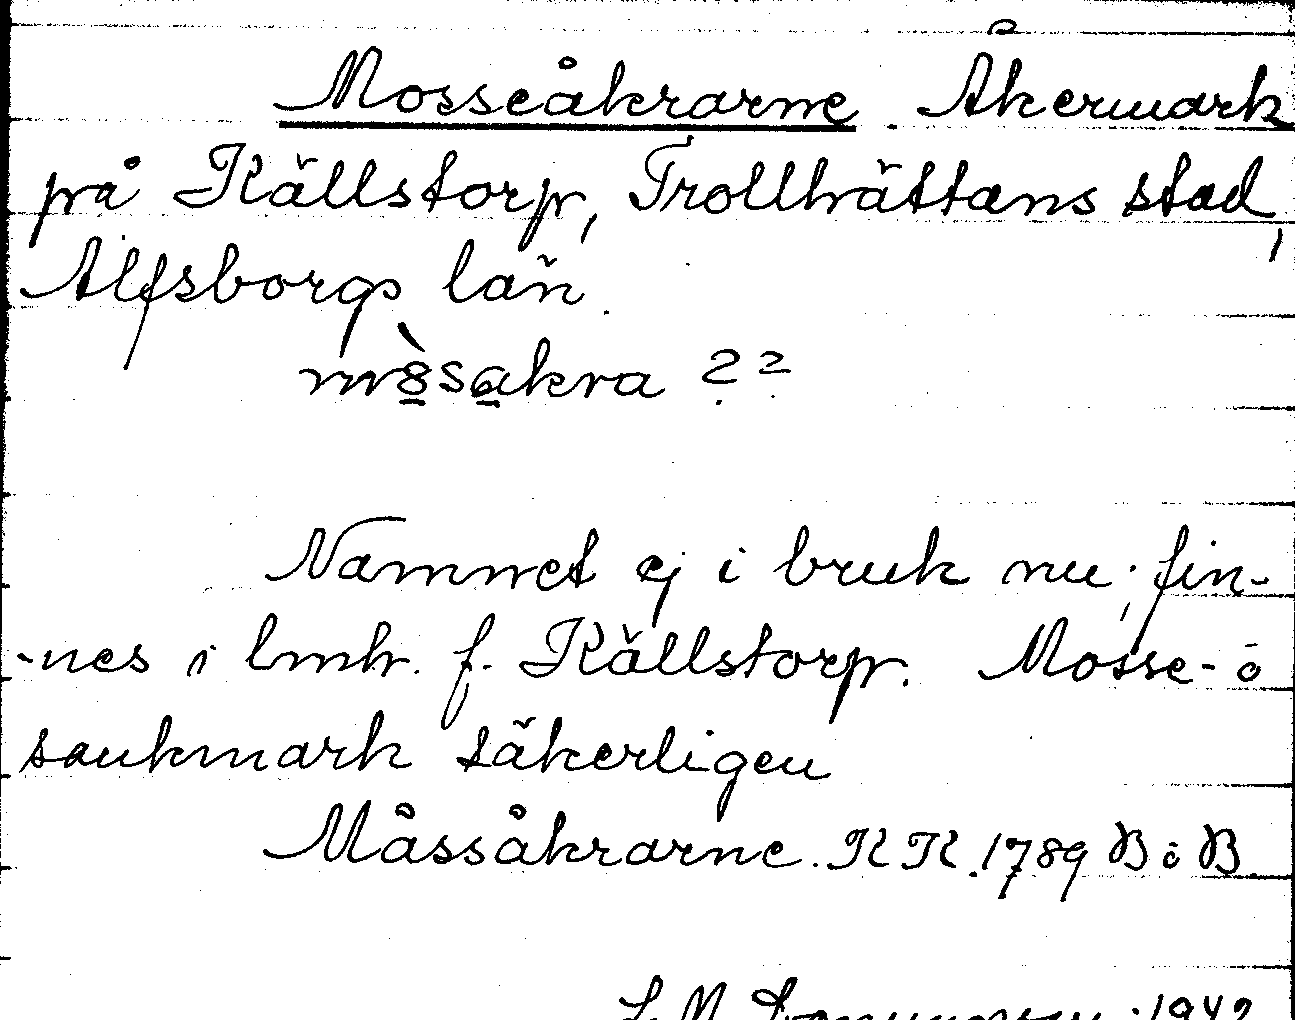 Mosseåkrarne. Åkermark
på Källstorp, Trollhättans stad,
Älfsborgs län.
Namnet ej i bruk nu; fin-
-nes i lmh. f. Källstorp. Mosse- o
sankmark säkerligen
Måssåkrarne. KK. 1789 B o B
1942